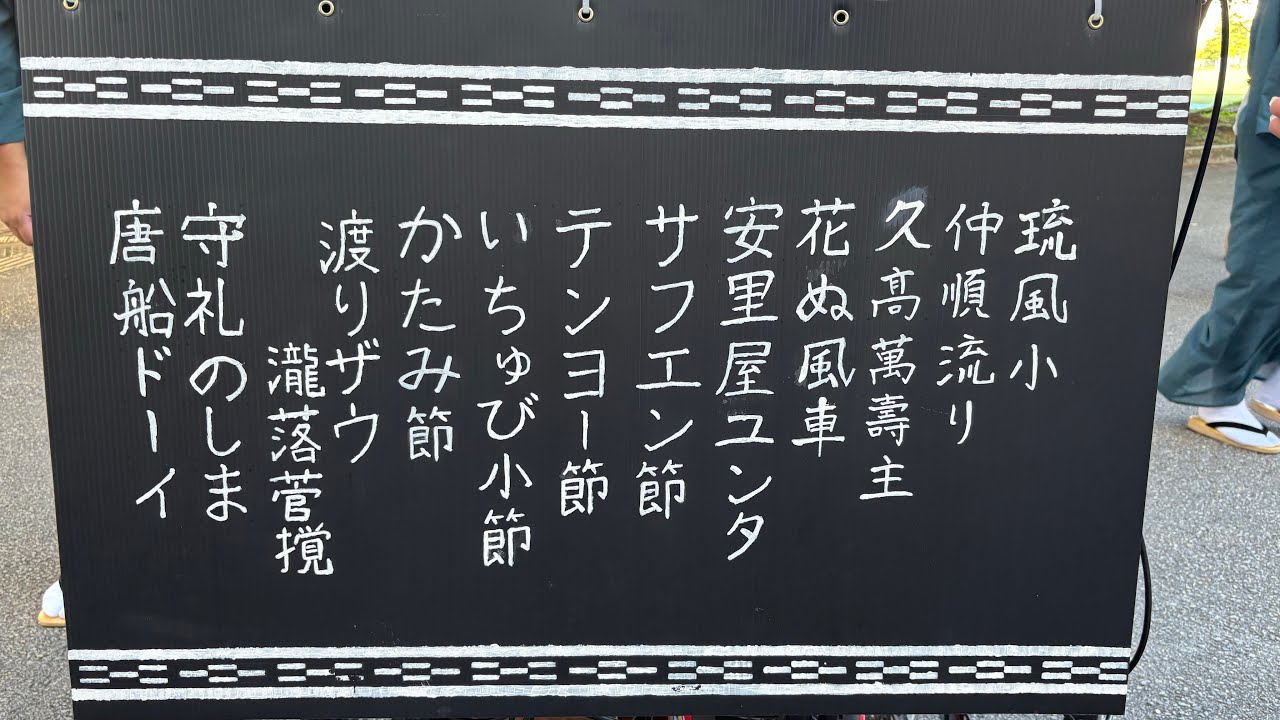 琉風小
仲順流り
久高萬壽主
花ぬ風車
安里屋ユンタ
サフエン節
テンヨー節
いちゅび小節
かたみ節
渡りザウ
瀧落菅撹
守礼のしま
唐船ドーイ